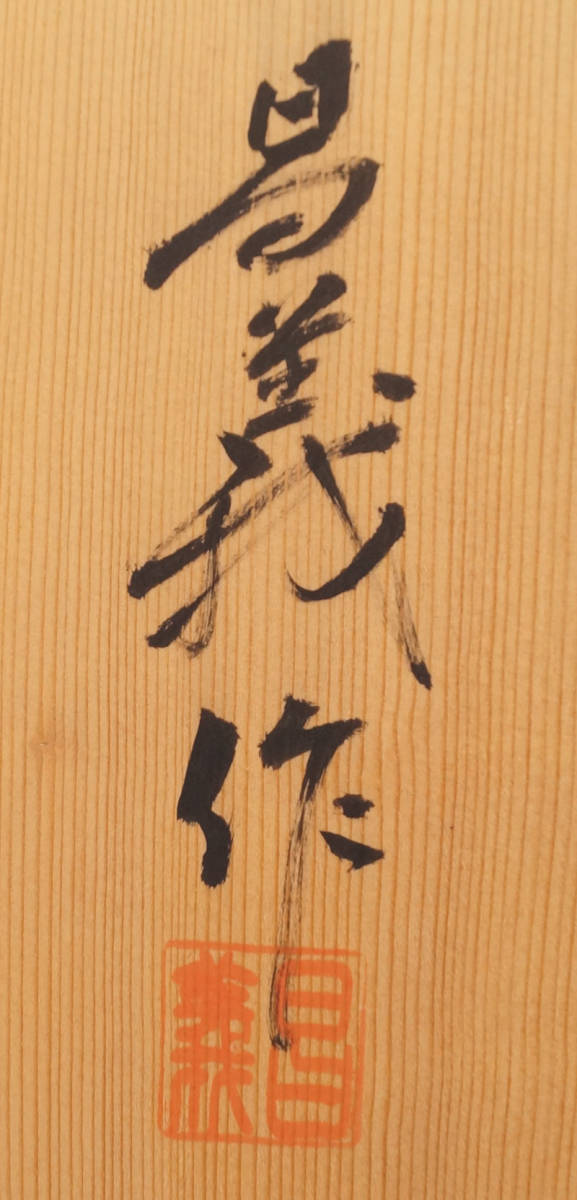 昌義作
昌義